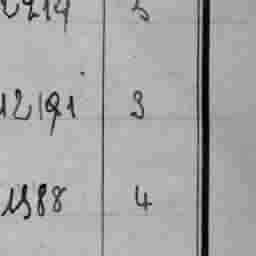 2214 5
12191 3
1588 4